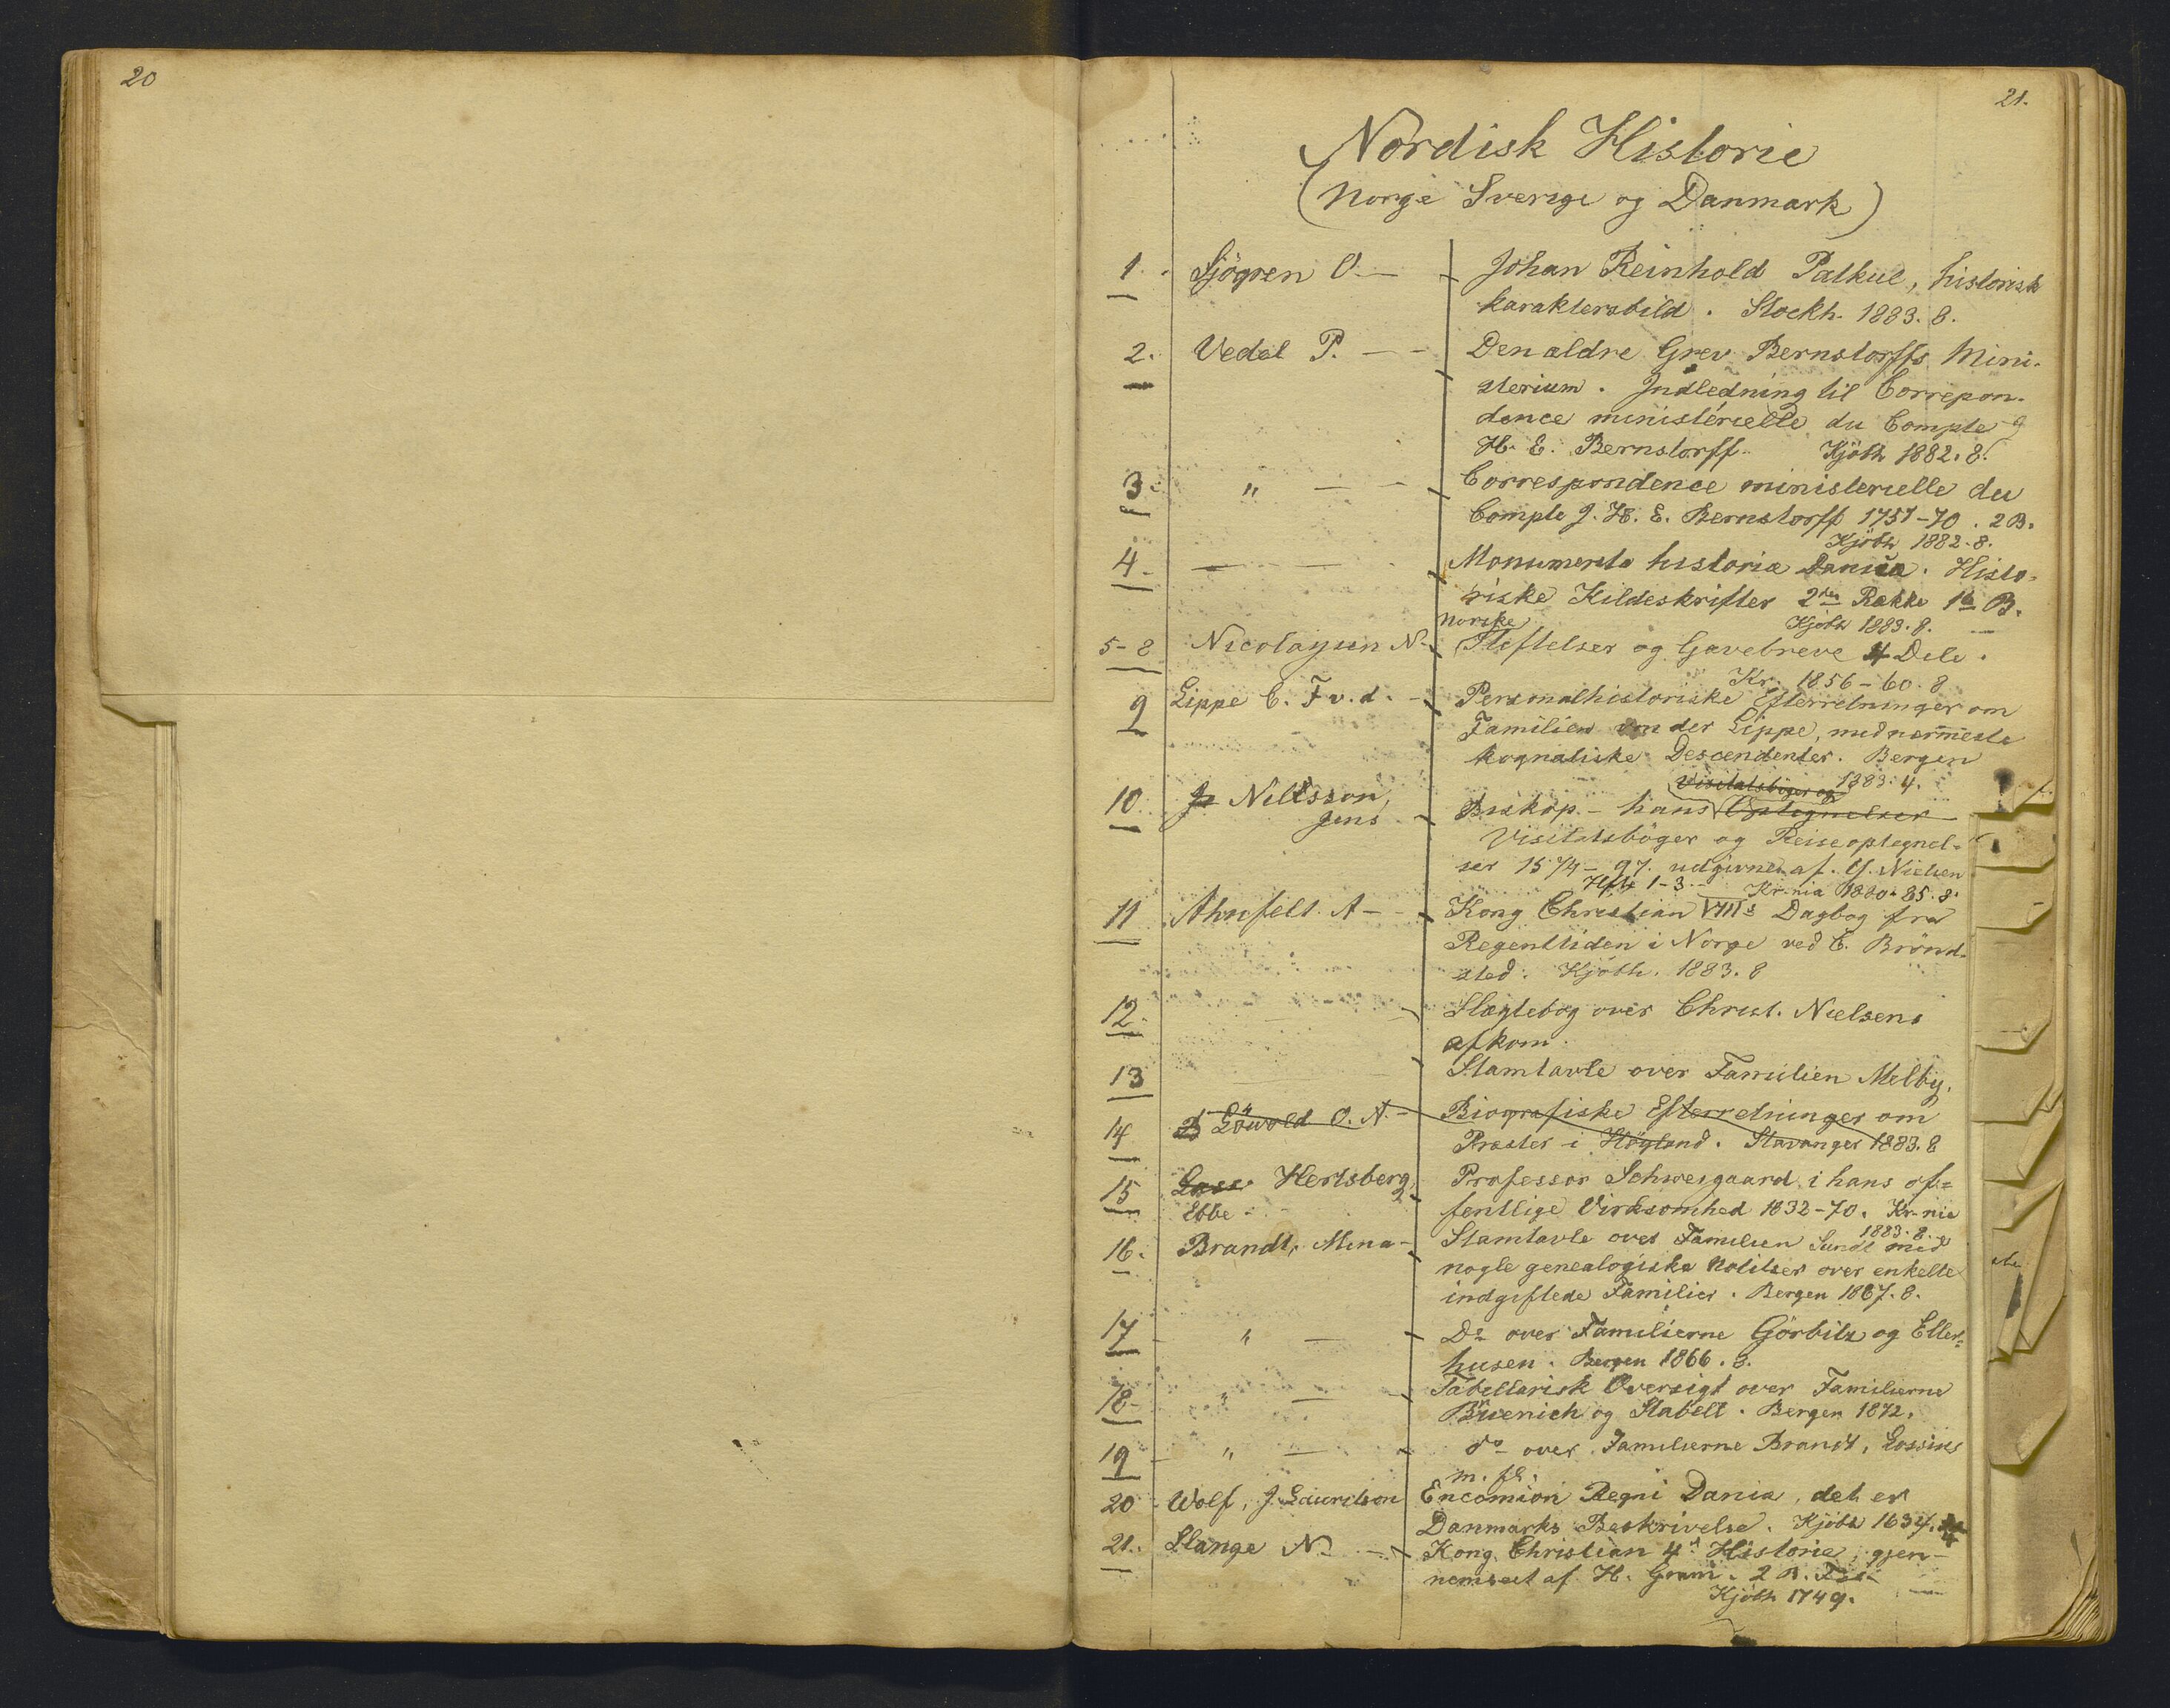 20
21.
Nordisk Historie
(Norge Sverige og Danmark)
1. Sjögren O. — Johan Reinhold Patkul, historisk
karaktersbild. Stockh. 1883. 8.
2. Vedel P. — — Den ældre Grev Bernstorffs Mini-
sterium. Indledning til Correpon-
dence ministérielle du Compte J
H. E. Bernstorff. Kjöbh 1882. 8.
3. " — — Correspondence ministerielle du
Compte J. H. E. Bernstorff 1751-70. 2 B.
Kjöbh 1882. 8.
4. — — Monumenta historiæ Danica. Histo-
riske Kildeskrifter 2den Række 1te B.
Kjöbh 1883. 8.
5-8 Nicolaysen N. Norske
Stiftelser og Gavebreve 4 Dele.
Kr. 1856-60. 8
9 Lippe C. F v. d. — Personalhistoriske Efterretninger om
Familien von der Lippe, med nærmeste
kognatiske Descendenter. Bergen
1883. 4.
10. Jo Nilsson, Visitatsbøger og
Jens Biskop — hans Optegnelser
Visitatsböger og Reiseoptegnel-
ser 1574-97. udgivne af. Y. Nielsen
Hefte 1-3 — Kr-nia 1880-85. 8.
11 Ahnfelt A — Kong Christian VIIIs Dagbog fra
Regenttiden i Norge ved C. Brönd-
sted. Kjöbh. 1883. 8
12. Slægtebog over Christ. Nielsens
afkom.
13 Stamtavle over Familien Melby.
14 Löwold O. A. — Biografiske Efterretninger om
Præster i Högland. Stavanger 1883. 8
15 Lass. Hertsberg, Professor Schweigaard i hans of-
Ebbe — fentlige Virksomhed 1832-70. Kr-nia
1883. 8.
16. Brandt, Mina — Stamtavle over Familien Sundt med
nogle genealogiske Notitser over enkelte
indgiftede Familier. Bergen 1867. 8.
17 " — Do over Familierne Görbitz og Eller-
husen. Bergen 1866. 8.
18 — " — Tabellarisk Oversigt over Familierne
Buenich og Stabell. Bergen 1872.
19 — " — do over Familierne Brandt, Lossius
m. fl.
20 Wolf, J. Lauritson Encomion Regni Daniæ, det er
Danmarks Beskrivelse. Kjöbh 1654. 4
21. Slange N. — Kong Christian 4s Historie, gjen-
nemseet af H. Gram. 2 B. Fol.
Kjöbh 1749.